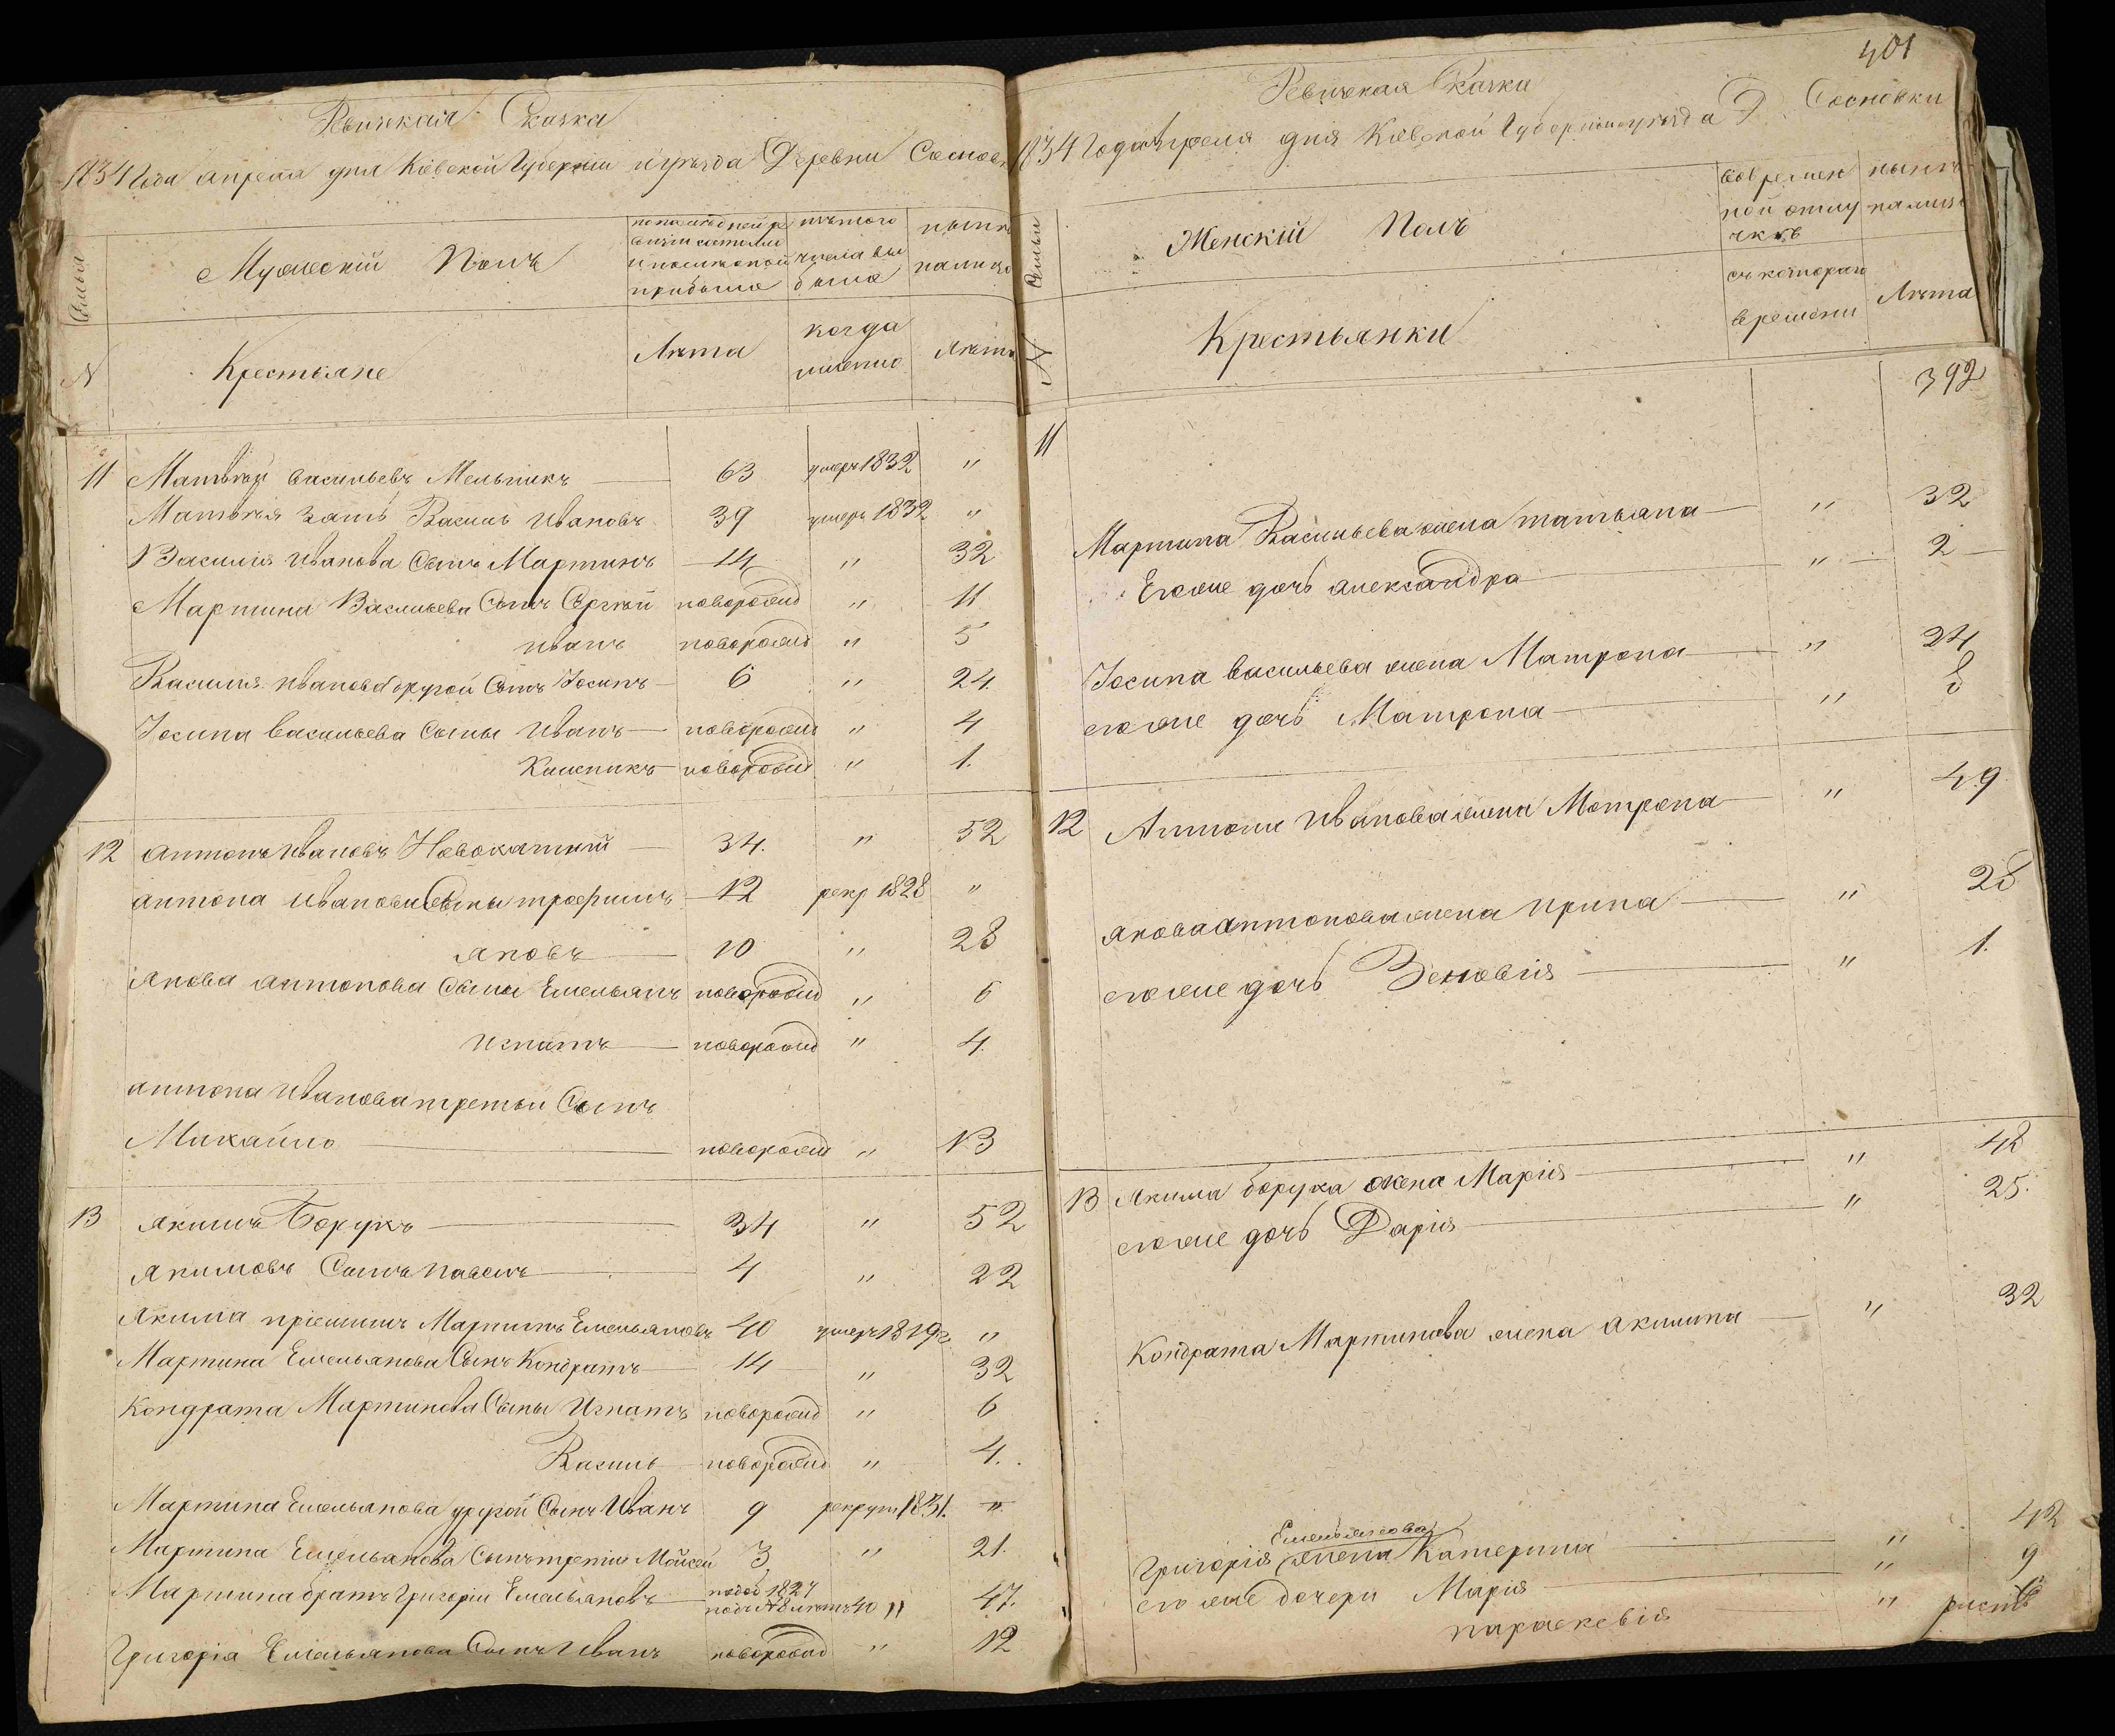 Ревижская Сказка
1834 Года апреля дня Кіевской Губерніи и уѣзда Деревни Сосновки
Семьи
Мужескій Полъ
по последней ревизіи состояло и после оной прибыло
изъ того числа выбыло
нынѣ на лицо
N
Крестьяне
Лѣта
когда именно
Лѣта
11 Матвѣй Васильевъ Мельникъ 63 умеръ 1832 "
Матвѣя зять Василь Ивановъ 39 умеръ 1832 "
Василія Иванова Сынъ Мартинъ 14 " 32
Мартина Васильева Сынъ Сергѣй новорожд " 11
Иванъ новорожд " 5
Василія Иванова другой Сынъ Іосипъ 6 " 24
Іосипа Васильева Сыны Иванъ новорожд " 4
новорожд " 1.
12 Антонъ Ивановъ Новохатній 34. " 52
Антона Иванова Сыны Трофимъ 12 рекр 1828 "
Яковъ 10 " 28
Якова Антонова Сыны Емельянъ новорожд " 6
Игнатъ новорожд " 4.
Антона Иванова третьи Сынъ
Михайло новорожд " 13
13 Якимъ Борукъ 34 " 52
Якимовъ Сынъ Павелъ 4 " 22
Якима пріемышъ Мартинъ Емельяновъ 40 умеръ 1819г "
Мартина Емельянова Сынъ Кондратъ 14 " 32
Кондрата Мартинова Сыны Игнатъ новорожд " 6
Василь новорожд " 4.
Мартина Емельянова другой Сынъ Иванъ 9 рекрут 1831. "
Мартина Емельянова Сынъ третіи Мойсей 3 " 21.
Мартина братъ Григоріи Емельяновъ 1827 40 " 47.
Григорія Емельянова Сынъ Иванъ новорожд " 12
401
Ревижская Сказки
1834 Года Апреля дня Кіевской Губерніи и уѣзда Д. Сосновки
Семьи
Женскій Полъ
во временной отлучкѣ
нынѣ на лицо
N
Крестьянки
съ котораго времени
Лѣта
392
11
Мартина Васильева жена Татьяна " 32
Егоже дочь Александра " 2
Іосипа Васильева жена Матрона " 24
егоже дочь Матрона " 8
12 Антона Иванова жена Мотрона " 49
Якова Антонова жена Ирина " 28
егоже дочь Зеновія " 1.
13 Якима Борука жена Марія " 48
егоже дочь Дарія " 25.
Кондрата Мартинова жена Акилина " 32
Емельянова
Григорія жена Катерина " 42
его же дочери Марія " 9
Параскевія "